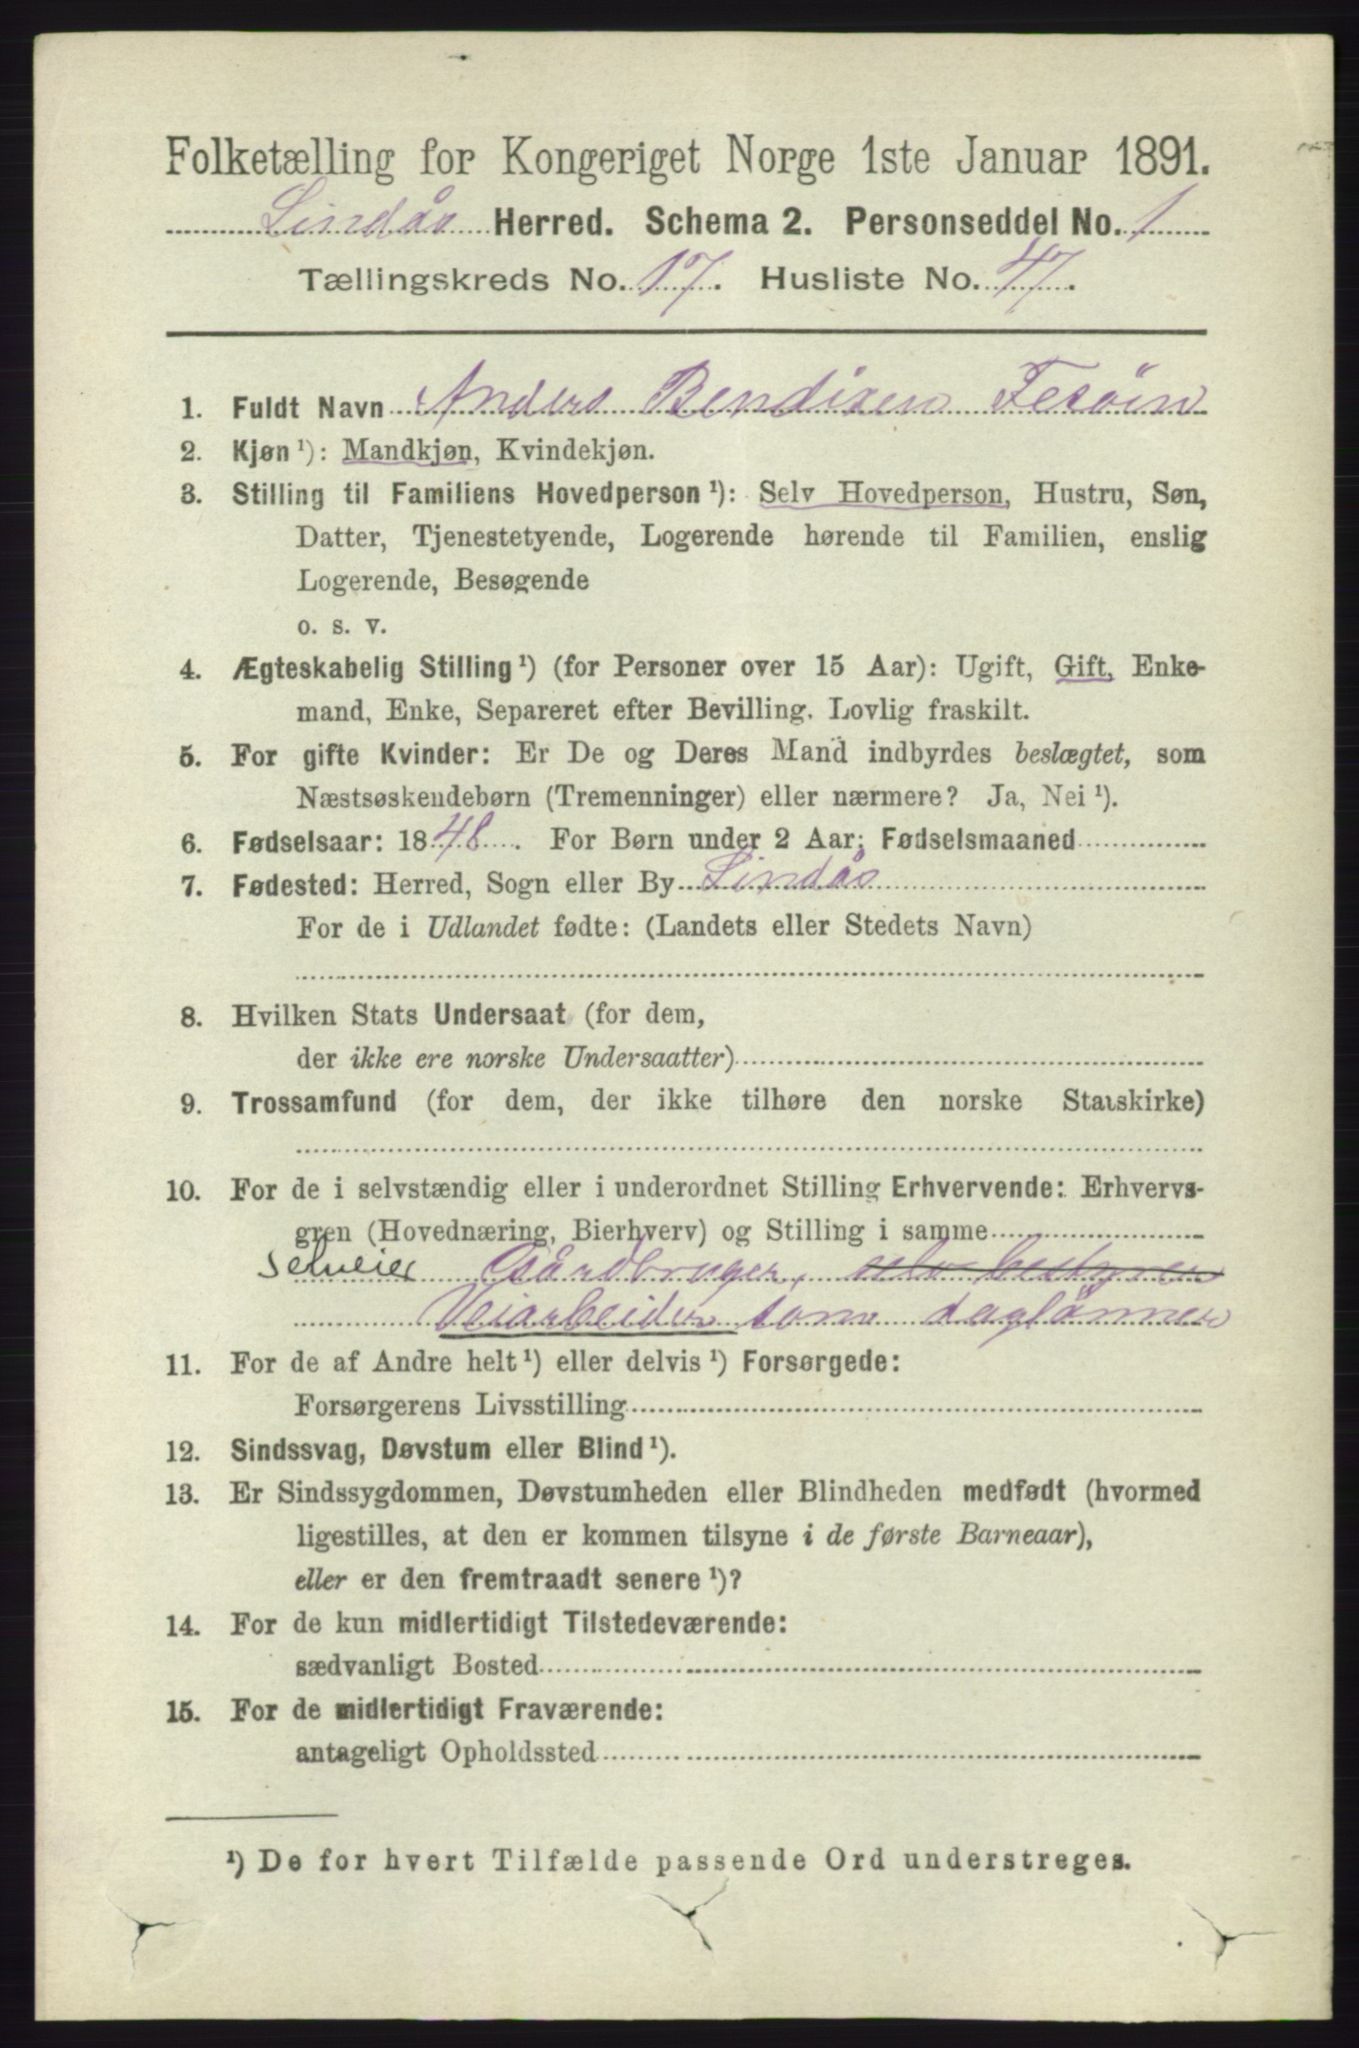 Folketælling for Kongeriget Norge 1ste Januar 1891.
Lindås Herred. Schema 2. Personseddel No. 1
Tællingskreds No. 17. Husliste No. 47.
1. Fuldt Navn Anders Bendixen Fesöin
2. Kjøn ¹): Mandkjøn, Kvindekjøn.
3. Stilling til Familiens Hovedperson ¹): Selv Hovedperson, Hustru, Søn,
Datter, Tjenestetyende, Logerende hørende til Familien, enslig
Logerende, Besøgende
o. s. v.
4. Ægteskabelig Stilling ¹) (for Personer over 15 Aar): Ugift, Gift, Enke-
mand, Enke, Separeret efter Bevilling. Lovlig fraskilt.
5. For gifte Kvinder: Er De og Deres Mand indbyrdes beslægtet, som
Næstsøskendebørn (Tremenninger) eller nærmere? Ja, Nei ¹).
6. Fødselsaar: 1848. For Børn under 2 Aar: Fødselsmaaned
7. Fødested: Herred, Sogn eller By Lindås
For de i Udlandet fødte: (Landets eller Stedets Navn)
8. Hvilken Stats Undersaat (for dem,
der ikke ere norske Undersaatter)
9. Trossamfund (for dem, der ikke tilhøre den norske Statskirke)
10. For de i selvstændig eller i underordnet Stilling Erhvervende: Erhvervs-
gren (Hovednæring, Bierhverv) og Stilling i samme
Selveier Gårdbruger, selv bestyrer
Veiarbeider som daglönner
11. For de af Andre helt ¹) eller delvis ¹) Forsørgede:
Forsørgerens Livsstilling
12. Sindssvag, Døvstum eller Blind ¹).
13. Er Sindssygdommen, Døvstumheden eller Blindheden medfødt (hvormed
ligestilles, at den er kommen tilsyne i de første Barneaar),
eller er den fremtraadt senere ¹)?
14. For de kun midlertidigt Tilstedeværende:
sædvanligt Bosted
15. For de midlertidigt Fraværende:
antageligt Opholdssted
¹) De for hvert Tilfælde passende Ord understreges.